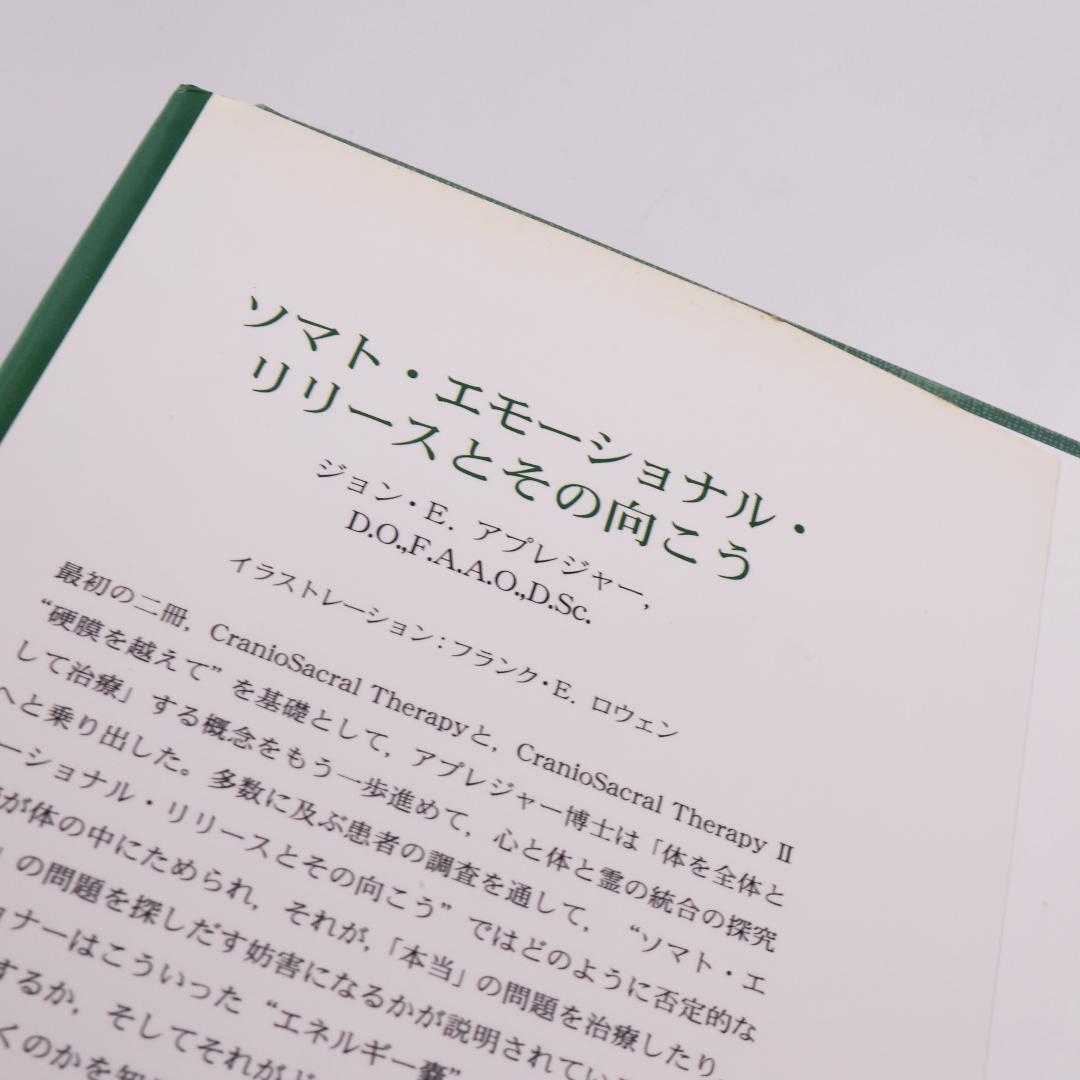 ソマト・エモーショナル・
リリースとその向こう
ジョン・E. アプレジャー,
D.O.,F.A.A.O.,D.Sc.
イラストレーション：フランク・E. ロウェン
最初の二冊, CranioSacral Therapyと, CranioSacral Therapy II
“硬膜を越えて” を基礎として, アプレジャー博士は「体を全体と
して治療」する概念をもう一歩進めて, 心と体と霊の統合の探究
へと乗り出した。多数に及ぶ患者の調査を通して, “ソマト・エ
ーショナル・リリースとその向こう” ではどのように否定的な
が体の中にためられ, それが,「本当」の問題を治療したり
」の問題を探しだす妨害になるかが説明されてい
ョナーはこういった “エネルギー嚢”
するか, そしてそれがど
くのかを知